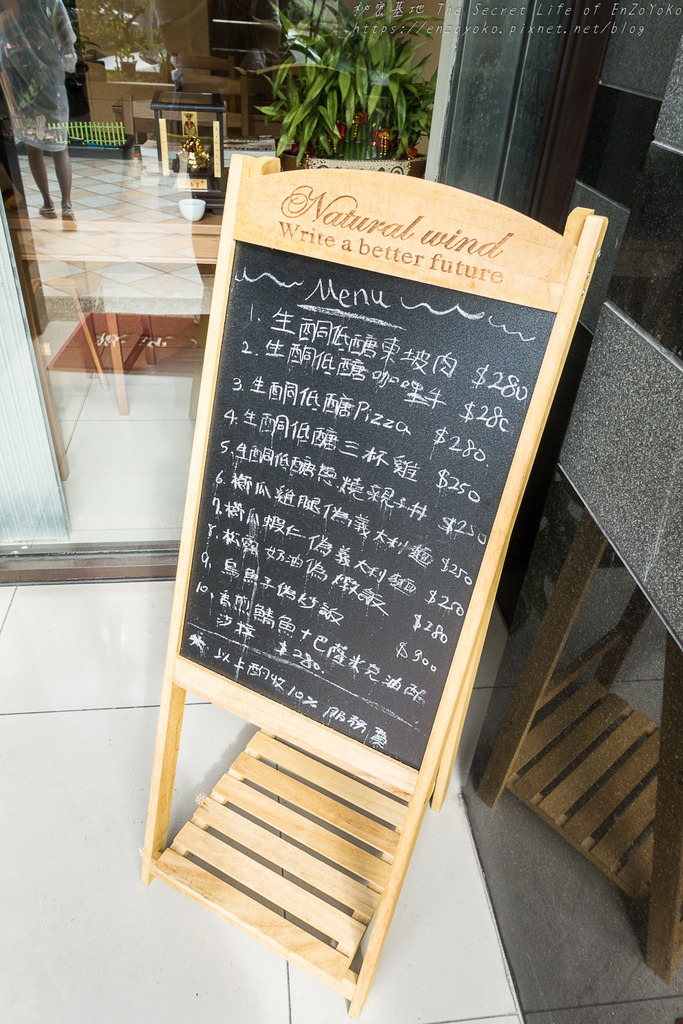 秘密基地 The Secret Life of EnZoYoKo
https://enzoyoko.pixnet.net/blog
Natural wind
Write a better future
Menu
1. 生酮低醣東坡肉 $280
2. 生酮低醣咖哩牛 $280
3. 生酮低醣Pizza $280.
4. 生酮低醣三杯雞 $250
5. 生酮低醣蔥燒親子丼 $250
6. 櫛瓜雞腿偽義大利麵 $250
7. 櫛瓜蝦仁偽義大利麵 $250
8. 松露奶油偽燉飯 $280
9. 烏魚子偽炒飯 $300
10. 香煎鯖魚+巴薩米克油醋
沙拉 $280.
※以上酌收10%服務費